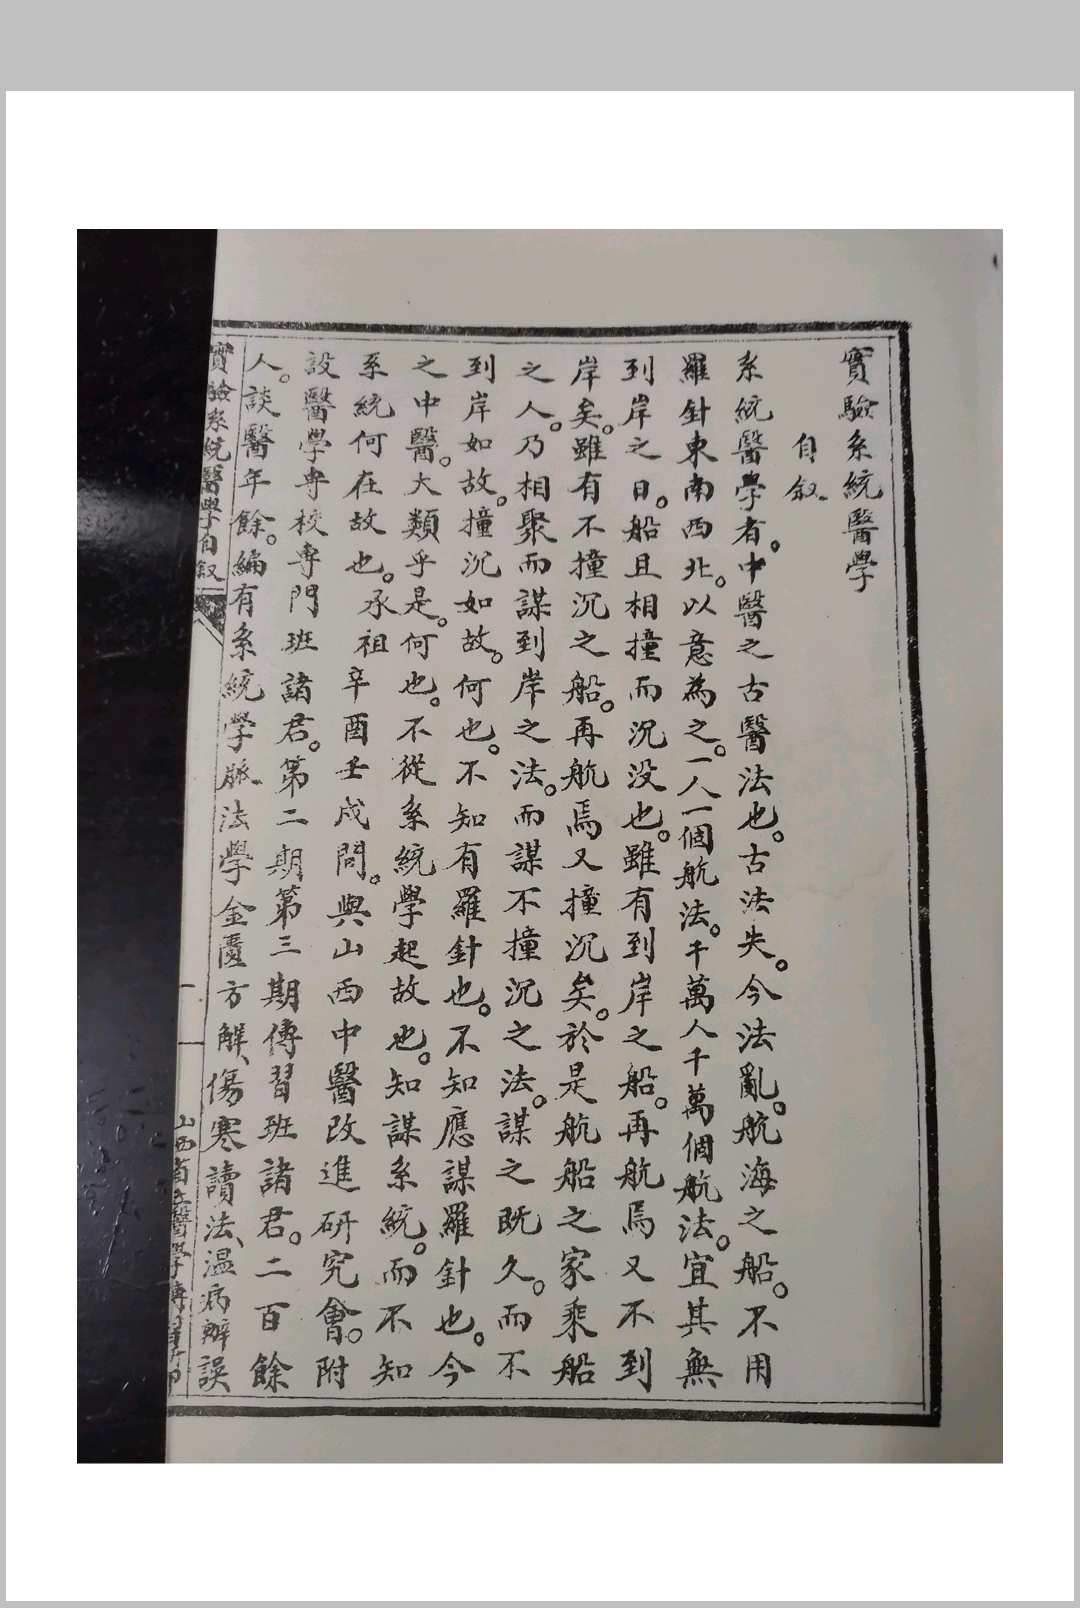 實驗系統醫學
自敘
系統醫學者。中醫之古醫法也。古法失。今法亂。航海之船。不用
羅針東南西北。以意為之。一人一個航法。千萬人千萬個航法。宜其無
到岸之日。船且相撞而沉没也。雖有到岸之船。再航焉又不到
岸矣。雖有不撞沉之船。再航焉又撞沉矣。於是航船之家乘船
之人。乃相聚而謀到岸之法。而謀不撞沉之法。謀之既久。而不
到岸如故。撞沉如故。何也。不知有羅針也。不知應謀羅針也。今
之中醫。大類乎是。何也。不從系統學起故也。知謀系統。而不知
系統何在故也。承祖辛酉壬戌間。與山西中醫改進研究會。附
設醫學專校專門班諸君。第二期第三期傳習班諸君。二百餘
人。談醫年餘。編有系統學脈法學金匱方解、傷寒讀法、温病辨誤
實驗系統醫學自叙
一
山西省立醫學傳習所印